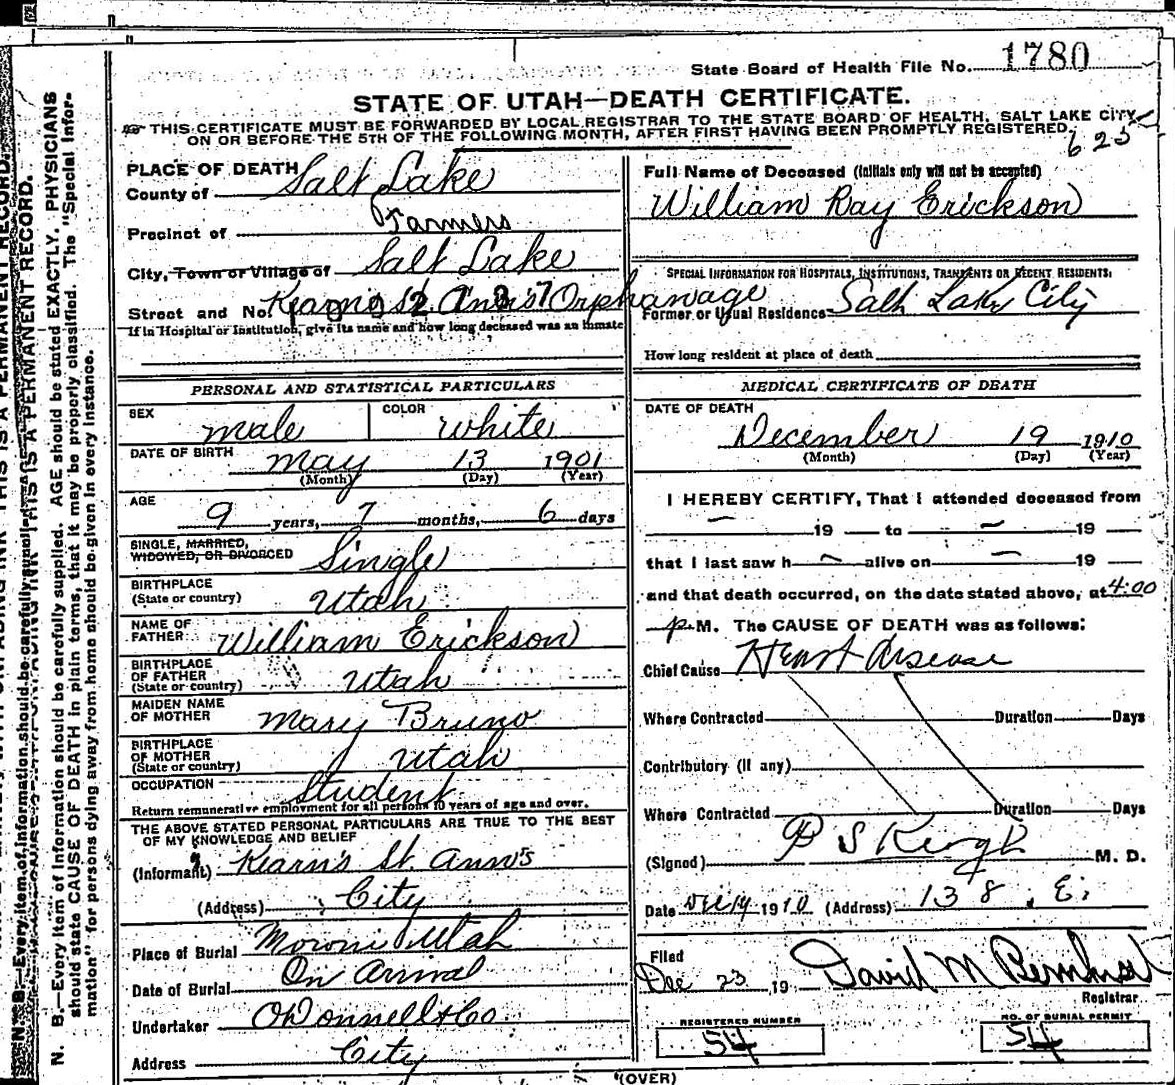 State Board of Health File No. 1780
STATE OF UTAH—DEATH CERTIFICATE.
THIS CERTIFICATE MUST BE FORWARDED BY LOCAL REGISTRAR TO THE STATE BOARD OF HEALTH, SALT LAKE CITY
ON OR BEFORE THE 5TH OF THE FOLLOWING MONTH, AFTER FIRST HAVING BEEN PROMPTLY REGISTERED.
625
PLACE OF DEATH
County of Salt Lake
Precinct of Farmers
City, Town or Village of Salt Lake
Street and No. Kearns St. Ann's Orphanage
If in Hospital or Institution, give its name and how long deceased was an inmate
Full Name of Deceased (Initials only will not be accepted)
William Ray Erickson
SPECIAL INFORMATION FOR HOSPITALS, INSTITUTIONS, TRANSIENTS OR RECENT RESIDENTS:
Former or Usual Residence Salt Lake City
How long resident at place of death
PERSONAL AND STATISTICAL PARTICULARS
SEX male COLOR white
DATE OF BIRTH may 13 1901
(Month) (Day) (Year)
AGE
9 years, 7 months, 6 days
SINGLE, MARRIED,
WIDOWED, OR DIVORCED Single
BIRTHPLACE
(State or country) Utah
NAME OF
FATHER William Erickson
BIRTHPLACE
OF FATHER
(State or country) Utah
MAIDEN NAME
OF MOTHER Mary Bruno
BIRTHPLACE
OF MOTHER
(State or country) Utah
OCCUPATION Student
Return remunerative employment for all persons 10 years of age and over.
THE ABOVE STATED PERSONAL PARTICULARS ARE TRUE TO THE BEST
OF MY KNOWLEDGE AND BELIEF
(Informant) Kearn's St. Ann's
(Address) City
Place of Burial Moroni Utah
Date of Burial On Arrival
Undertaker O'Donnell & Co
Address City
MEDICAL CERTIFICATE OF DEATH
DATE OF DEATH
December 19 1910
(Month) (Day) (Year)
I HEREBY CERTIFY, That I attended deceased from
— 19 — to — 19 —
that I last saw h — alive on — 19 —
and that death occurred, on the date stated above, at 4:00
p. M. The CAUSE OF DEATH was as follows:
Chief Cause Heart disease
Where Contracted Duration Days
Contributory (If any)
Where Contracted Duration Days
(Signed) M. D.
Date Dec 19 1910 (Address) 138 . E.
Filed
Dec 23, 19 David M
Registrar
REGISTERED NUMBER
54
NO. OF BURIAL PERMIT
54
(OVER)
N. B.—Every item of information should be carefully supplied. AGE should be stated EXACTLY. PHYSICIANS
should state CAUSE OF DEATH in plain terms, that it may be properly classified. The "Special Infor-
mation" for persons dying away from home should be given in every instance.